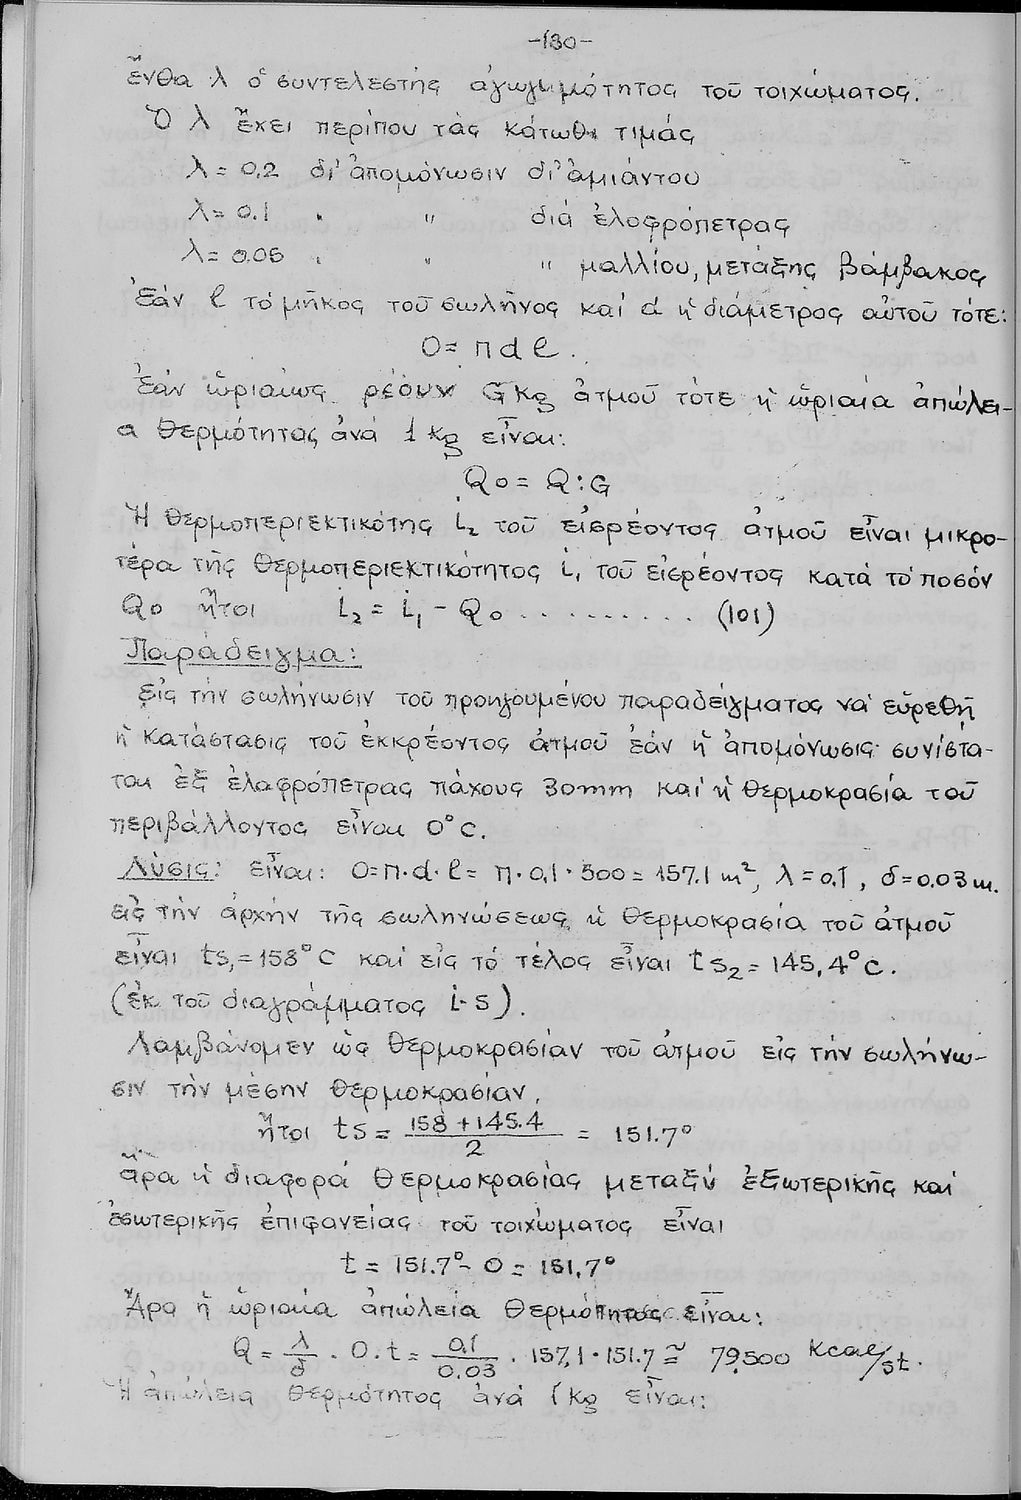 -130-
ἔνθα λ ὁ συντελεστής ἀγωγιμότητος τοῦ τοιχώματος.
Ὁ λ ἔχει περίπου τὰς κάτωθι τιμάς
λ = 0.2 δι' ἀπομόνωσιν δι' ἀμιάντου
λ = 0.1 " " διά ἐλαφρόπετρας
λ = 0.06 " " " μαλλίου, μετάξης βάμβακος
Ἐάν l τό μῆκος τοῦ σωλῆνος καί d ἡ διάμετρος αὐτοῦ τότε:
O = π d l.
Ἐάν ὡριαίως ρέουν G Kg ἀτμοῦ τότε ἡ ὡριαία ἀπώλει-
α θερμότητας ἀνά 1 Kg εἶναι:
Qo = Q:G
Ἡ θερμοπεριεκτικότης i₂ τοῦ εἰσρέοντος ἀτμοῦ εἶναι μικρο-
τέρα τῆς θερμοπεριεκτικότητος i₁ τοῦ εἰσρέοντος κατά τό ποσόν
Qo ἤτοι i₂ = i₁ - Qo .......... (101)
Παράδειγμα:
εἰς τήν σωλήνωσιν τοῦ προηγουμένου παραδείγματος νά εὑρεθῇ
ἡ κατάστασις τοῦ ἐκκρέοντος ἀτμοῦ ἐάν ἡ ἀπομόνωσις συνίστα-
ται ἐξ ἐλαφρόπετρας πάχους 30mm καί ἡ θερμοκρασία τοῦ
περιβάλλοντος εἶναι 0°C.
Λύσις: εἶναι: O=π·d·l= π·0,1·500=157.1 m², λ=0,1, δ=0.03 m.
εἰς τήν ἀρχήν τῆς σωληνώσεως ἡ θερμοκρασία τοῦ ἀτμοῦ
εἶναι ts₁=158°C καί εἰς τό τέλος εἶναι ts₂=145,4°C.
(ἐκ τοῦ διαγράμματος i-s).
Λαμβάνομεν ὡς θερμοκρασίαν τοῦ ἀτμοῦ εἰς τήν σωλήνω-
σιν τήν μέσην θερμοκρασίαν,
ἤτοι ts = (158+145.4)/2 = 151.7°
ἄρα ἡ διαφορά θερμοκρασίας μεταξύ ἐξωτερικῆς καί
ἐσωτερικῆς ἐπιφανείας τοῦ τοιχώματος εἶναι
t = 151.7° - 0 = 151,7°
Ἄρα ἡ ὡριαία ἀπώλεια θερμότητος εἶναι:
Q = λ/δ · O·t = 0,1/0,03 · 157,1·151.7 ≅ 79.500 Kcal/st.
Ἡ ἀπώλεια θερμότητος ἀνά 1 Kg εἶναι: